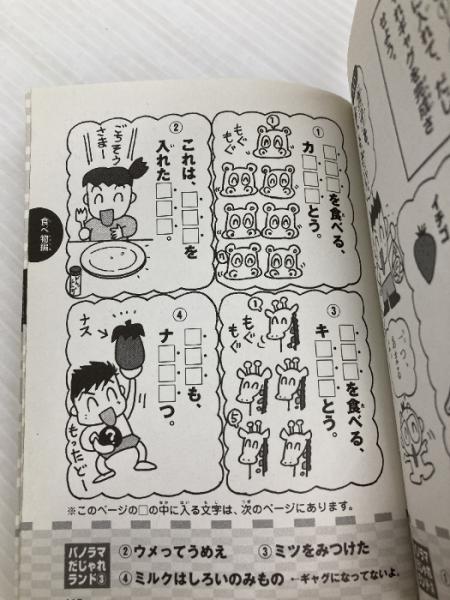 ①
カ□□□を食べる、
□□□とう。
もぐ
もぐ
①
⑦
②
これは、□□□を
入れた□□□。
ごちそう
さまー
食べ物編
③
キ□□□を食べる、
□□□とう。
①
もぐ
もぐ
⑤
④
ナ□□□も、
□□□つ。
ナス
もったどー
※このページの□の中に入る文字は、次のページにあります。
パノラマ
だじゃれ
ランド③
②ウメってうめえ ③ミツをみつけた
④ミルクはしろいのみもの ←ギャグになってないよ。
イチゴ
パノラマ
だじゃれ
ランド